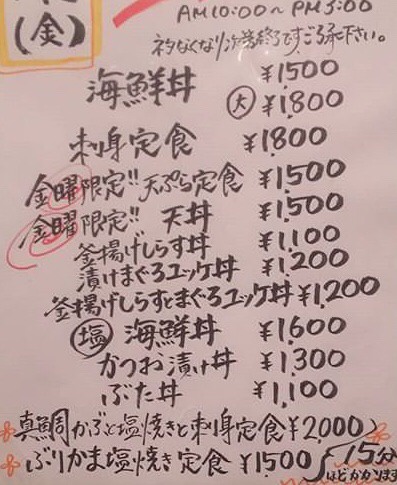 (金)
AM10:00〜PM3:00
ネタなくなり次第終了です。ご了承下さい。
海鮮丼 ¥1500
大 ¥1800
刺身定食 ¥1800
金曜限定!! 天ぷら定食 ¥1500
金曜限定!! 天丼 ¥1500
釜揚げしらす丼 ¥1,100
漬けまぐろユッケ丼 ¥1,200
釜揚げしらすとまぐろユッケ丼 ¥1,200
塩 海鮮丼 ¥1,600
かつお漬け丼 ¥1,300
ぶた丼 ¥1,100
真鯛かぶと塩焼きと刺身定食 ¥2,000
ぶりかま塩焼き定食 ¥1500
15分
ほどかかります